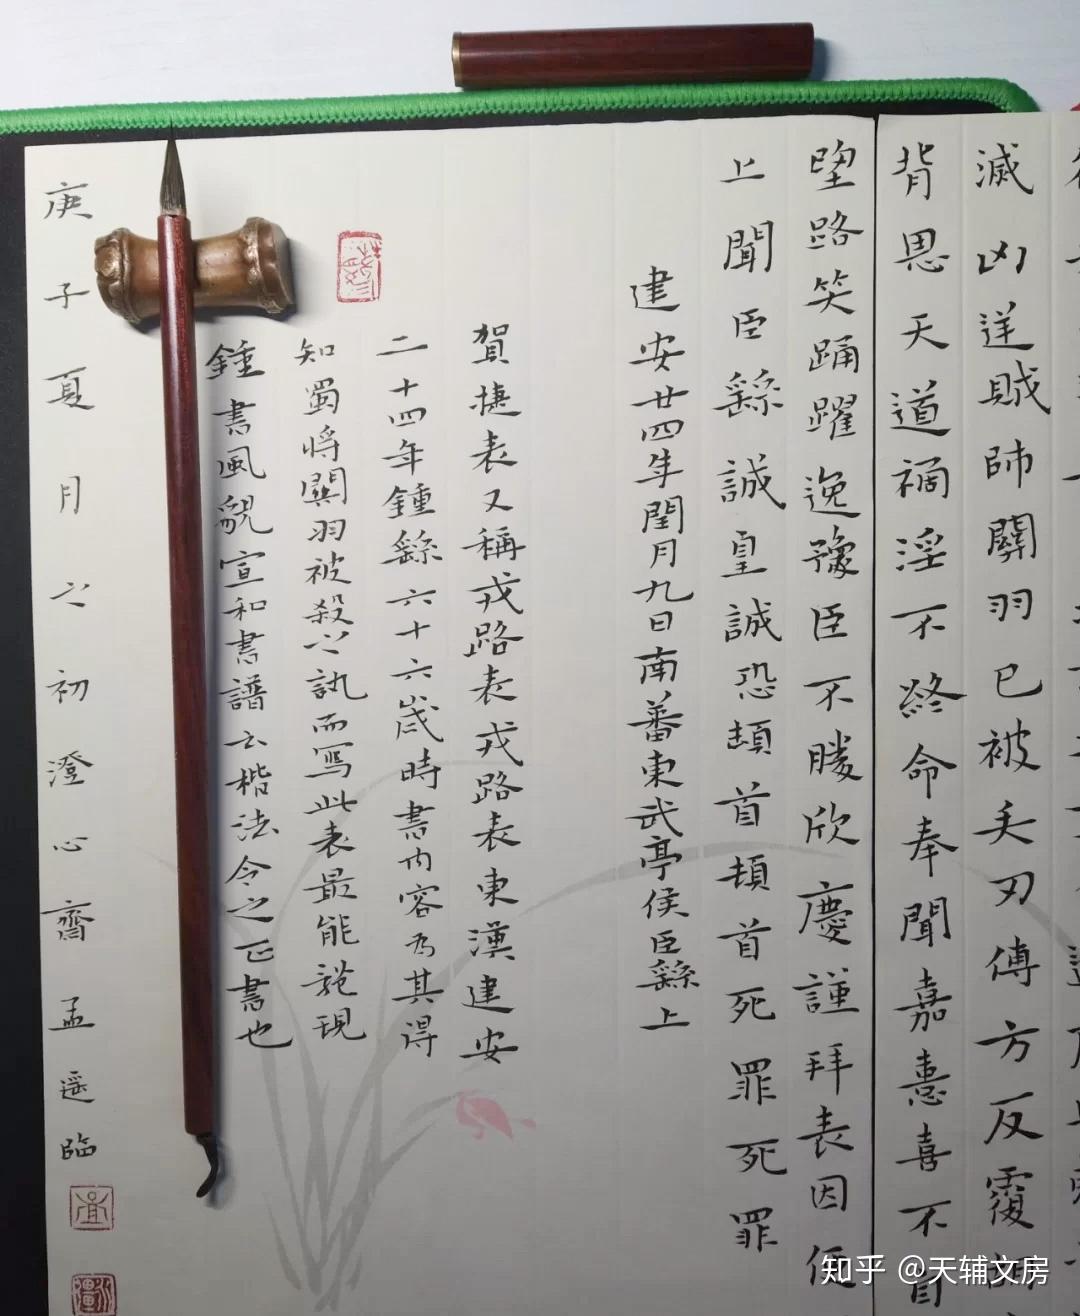 滅凶逆賊帥關羽已被矢刃傅方反覆胡
背恩天道禍淫不終命奉聞嘉憙喜不自
堕路笑踊躍逸豫臣不勝欣慶謹拜表因便
上聞臣繇誠皇誠恐頓首頓首死罪死罪
建安廿四年閏月九日南蕃東武亭侯臣繇上
賀捷表又稱戎路表戎路表東漢建安
二十四年鍾繇六十六歲時書內容为其得
知蜀將關羽被殺之訊而寫此表最能
現
鍾書風貌宣和書譜云楷法今之正書也
庚子夏月之初澄心齋孟遥臨
知乎 @天辅文房